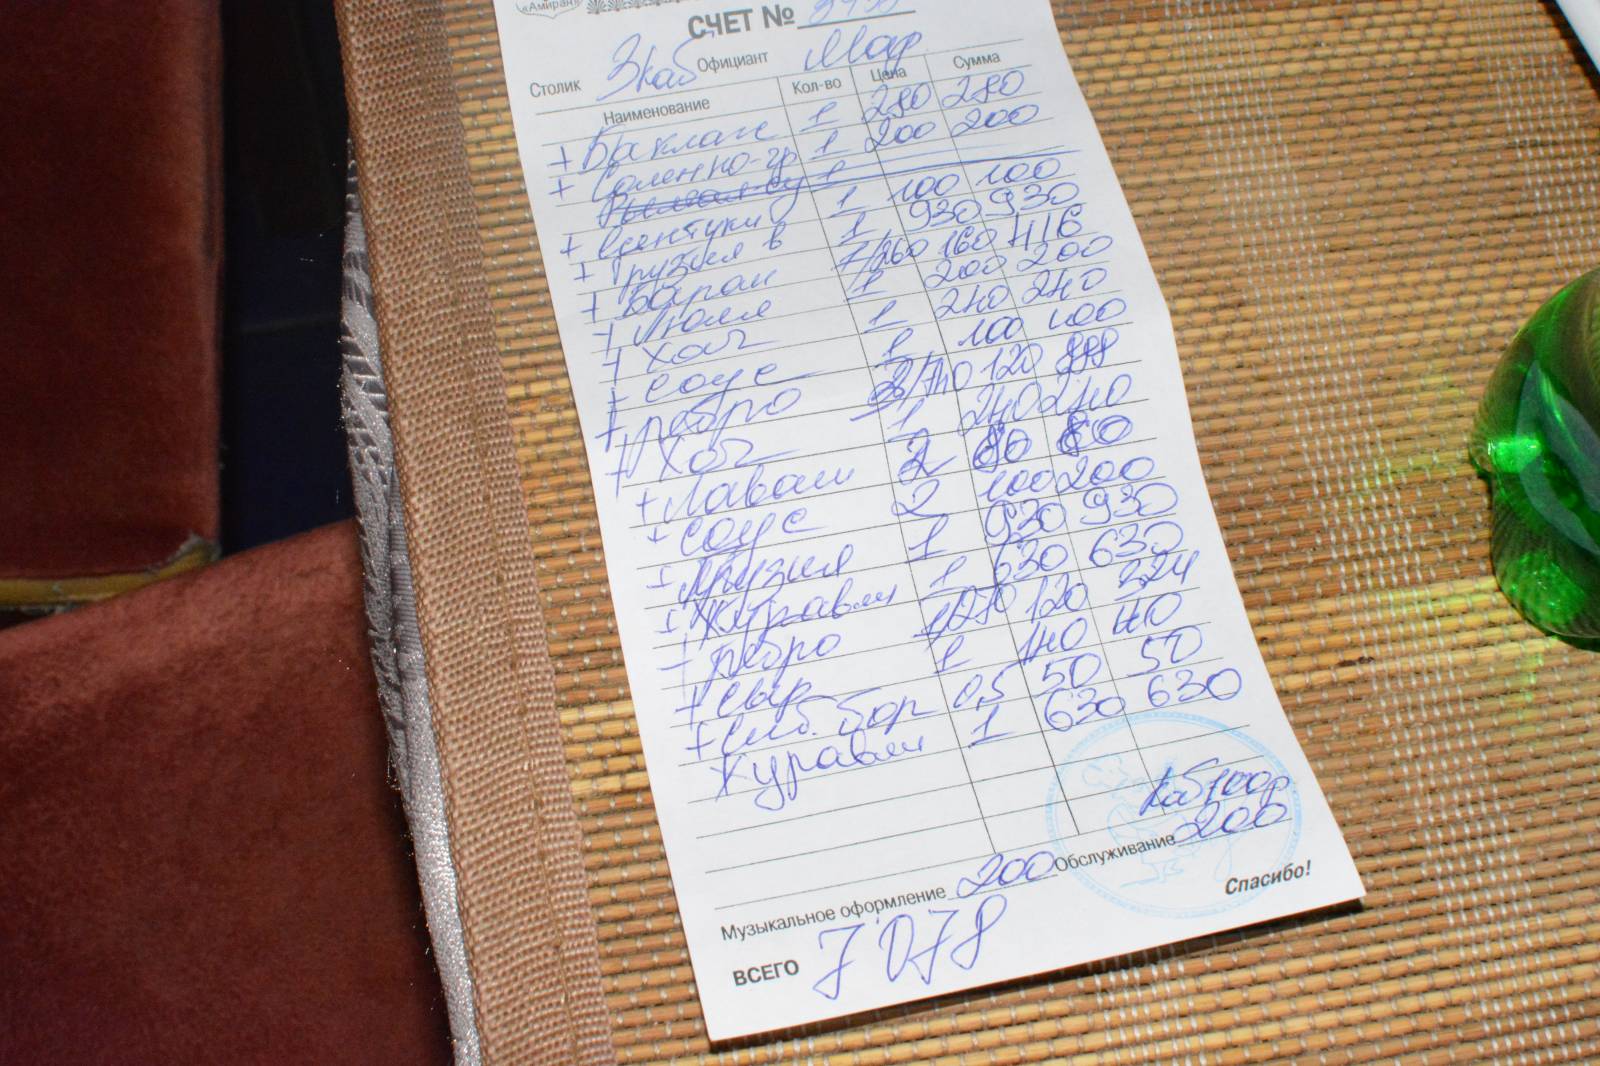 «Амиран»
СЧЕТ №
Столик 3 каб Официант Мар
Наименование Кол-во Цена Сумма
+ Баклаж 1 280 280
+ Соленно-гр 1 200 200
+ Ессентуки 1 100 100
+ Грузия в 1 930 930
+ Баран 1/260 160 416
+ Люля 1 200 200
+ Хач 1 240 240
+ Соус 1 100 100
+ ребро 3/740 120 888
+ Хач 1 240 240
+ Лаваш 2 80
+ соус 2 100 200
+ Грузия 1 930 930
+ Журавли 1 630 630
+ ребро 1/270 120 324
+ сыр 1 140 140
+ слб. бор 0,5 50 50
Журавли 1 630 630
Каб 100р
Музыкальное оформление 200 Обслуживание 200
ВСЕГО 7'078 Спасибо!